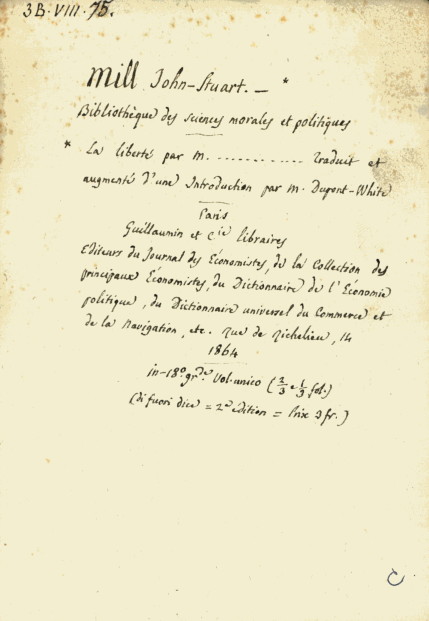 3B.VIII.75.
Mill John-Stuart. — *
Bibliothèque des sciences morales et politiques
* La liberté par M. ............ traduit et
augmenté d'une Introduction par M. Dupont-White
Paris
Guillaumin et Cie libraires
Editeurs du Journal des Économistes, de la Collection des
principaux Économistes, du Dictionnaire de l'Économie
politique, du Dictionnaire universel du Commerce et
de la Navigation, etc. Rue de Richelieu, 14
1864
in-18º grde. Vol. unico (2/3 e 1/3 fol.)
(di fuori dice = 2e edition = Prix 3 fr.)
C